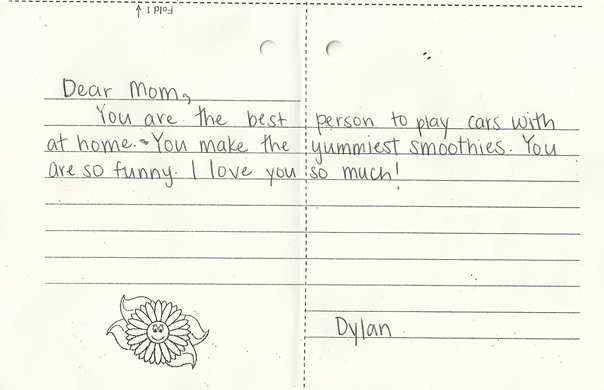 Fold 1
Dear Mom,
You are the best person to play cars with
at home. You make the yummiest smoothies. You
are so funny. I love you so much!
Dylan